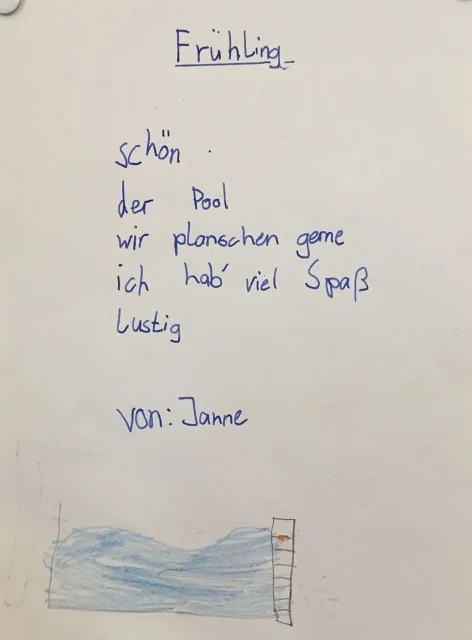 Frühling
schön
der Pool
wir planschen gerne
ich hab' viel Spaß
Lustig
von: Janne